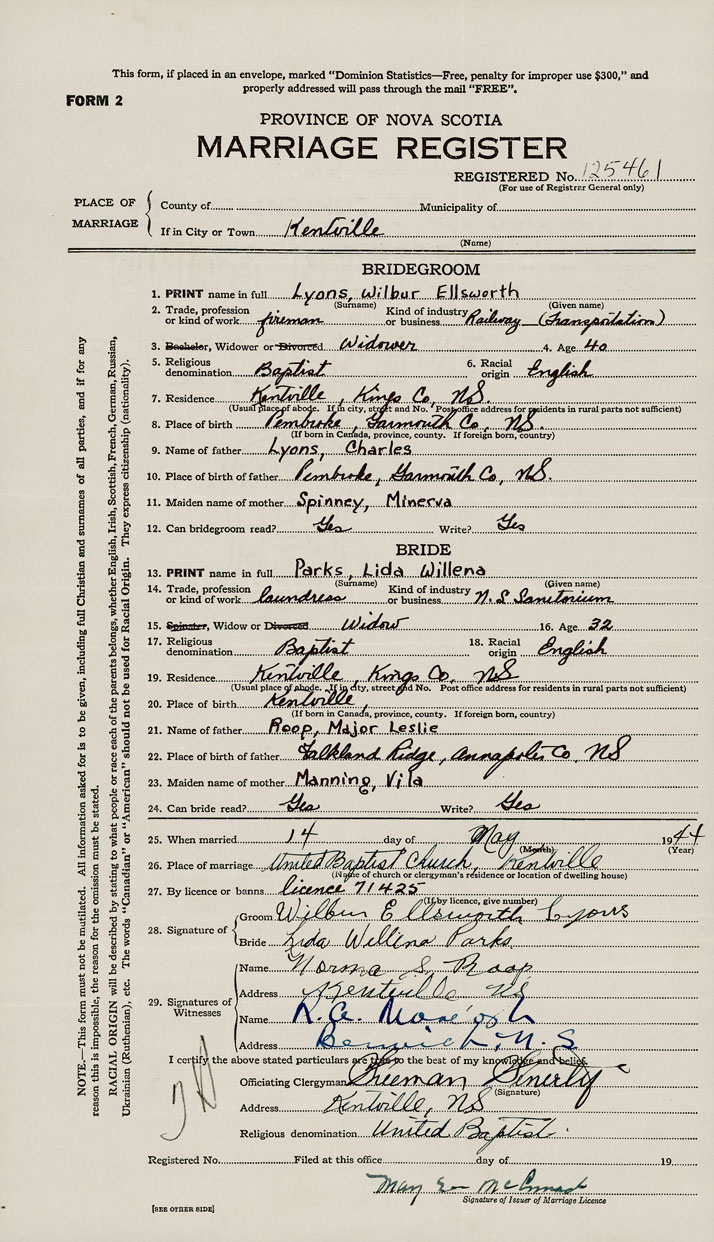 This form, if placed in an envelope, marked "Dominion Statistics—Free, penalty for improper use $300," and
properly addressed will pass through the mail "FREE".
FORM 2
PROVINCE OF NOVA SCOTIA
MARRIAGE REGISTER
REGISTERED No. 125461
(For use of Registrar General only)
PLACE OF MARRIAGE
County of Municipality of
If in City or Town Kentville
(Name)
BRIDEGROOM
1. PRINT name in full Lyons, Wilbur Ellsworth
(Surname) (Given name)
2. Trade, profession or kind of work fireman Kind of industry or business Railway (Transportation)
3. Bachelor, Widower or Divorced Widower 4. Age 40
5. Religious denomination Baptist 6. Racial origin English
7. Residence Kentville, Kings Co, NS.
(Usual place of abode. If in city, street and No. Post office address for residents in rural parts not sufficient)
8. Place of birth Pembroke, Yarmouth Co, NS.
(If born in Canada, province, county. If foreign born, country)
9. Name of father Lyons, Charles
10. Place of birth of father Pembroke, Yarmouth Co, NS.
11. Maiden name of mother Spinney, Minerva
12. Can bridegroom read? Yes Write? Yes
BRIDE
13. PRINT name in full Parks, Lida Willena
(Surname) (Given name)
14. Trade, profession or kind of work laundress Kind of industry or business N.S Sanitorium
15. Spinster, Widow or Divorced Widow 16. Age 32
17. Religious denomination Baptist 18. Racial origin English
19. Residence Kentville, Kings Co, NS
(Usual place of abode. If in city, street and No. Post office address for residents in rural parts not sufficient)
20. Place of birth Kentville,
(If born in Canada, province, county. If foreign born, country)
21. Name of father Roop, Major Leslie
22. Place of birth of father Falkland Ridge, Annapolis Co, NS
23. Maiden name of mother Manning, Vila
24. Can bride read? Yes Write? Yes
25. When married 14 day of May 1944
(Month) (Year)
26. Place of marriage United Baptist Church, Kentville
(Name of church or clergyman's residence or location of dwelling house)
27. By licence or banns licence 71425
(If by licence, give number)
28. Signature of
Groom Wilbur Ellsworth Lyons
Bride Lida Willena Parks
29. Signatures of Witnesses
Name Norma S. Roop
Address Kentville NS
Name R.A.
Address Berwick, N.S
I certify the above stated particulars are true to the best of my knowledge and belief.
Officiating Clergyman Freeman Fenerty
(Signature)
Address Kentville, NS
Religious denomination United Baptist.
Registered No. Filed at this office day of 19
May
Signature of Issuer of Marriage Licence
[SEE OTHER SIDE]
NOTE.—This form must not be mutilated. All information asked for is to be given, including full Christian and surnames of all parties, and if for any
reason this is impossible, the reason for the omission must be stated.
RACIAL ORIGIN will be described by stating to what people or race each of the parents belongs, whether English, Irish, Scottish, French, German, Russian,
Ukrainian (Ruthenian), etc. The words "Canadian" or "American" should not be used for Racial Origin. They express citizenship (nationality).